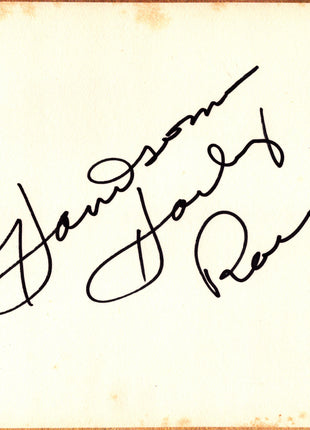 Handsom
Harley
Ra